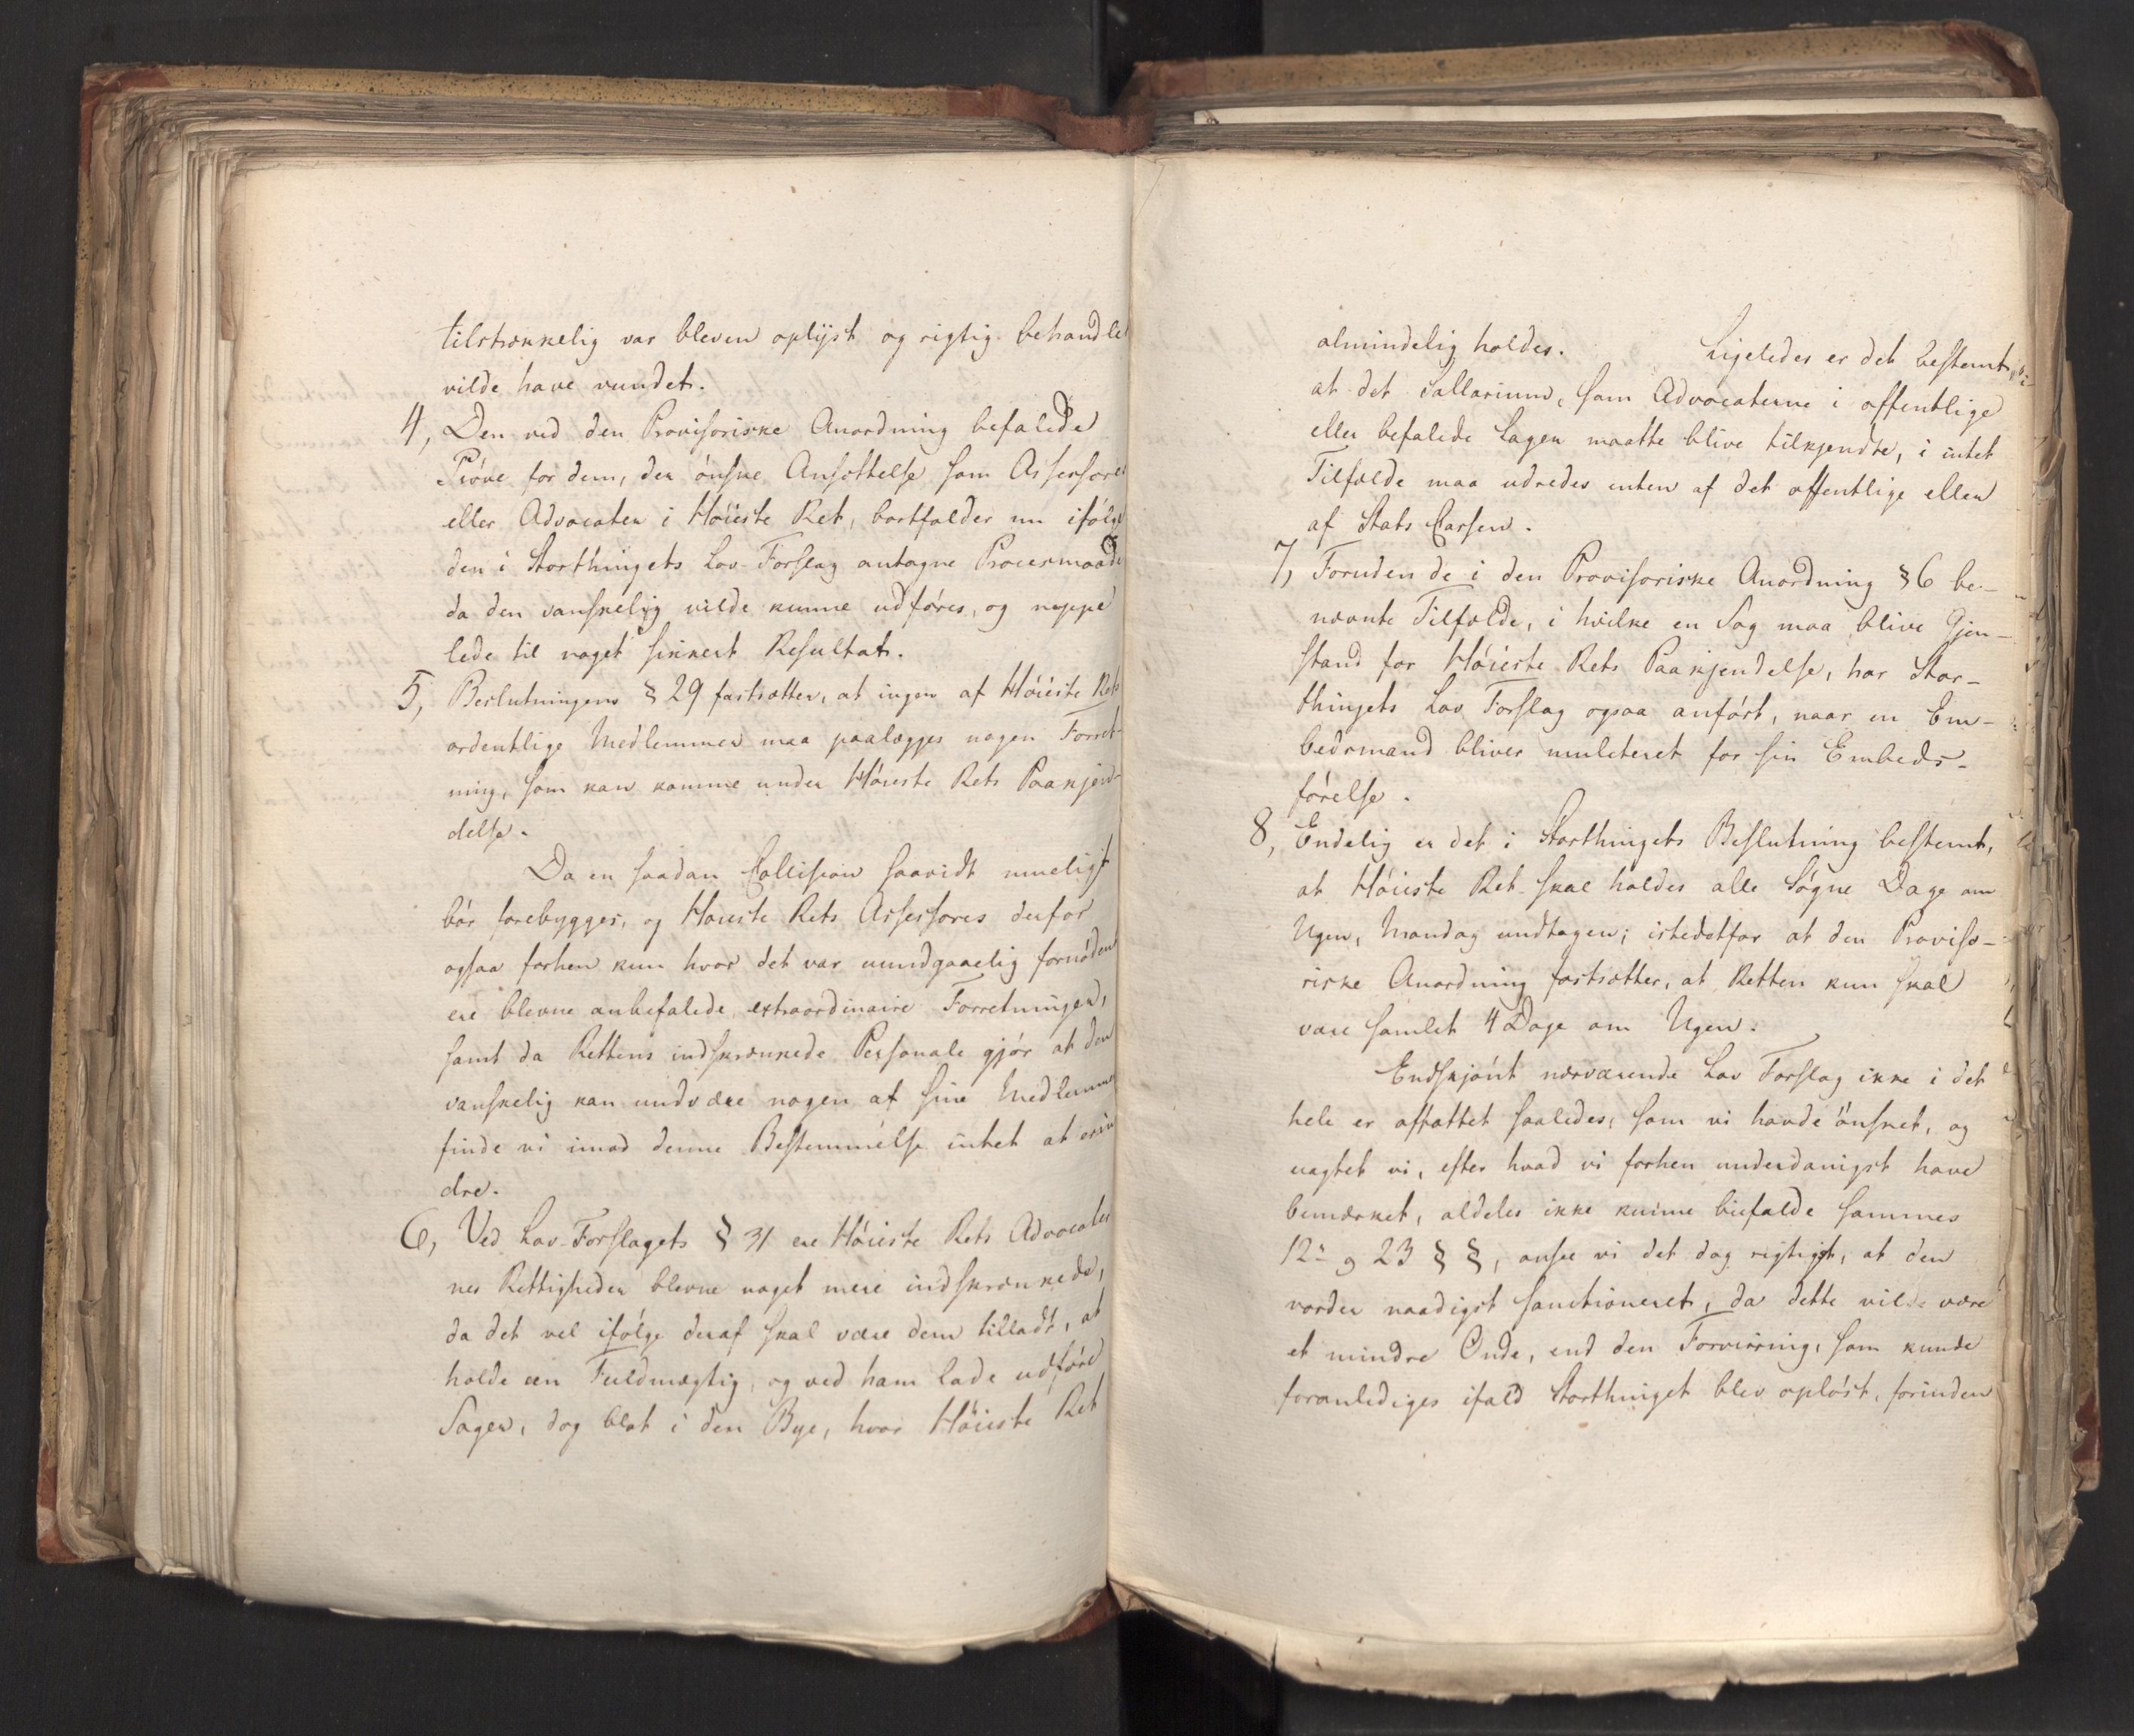 tilstrækkelig var bleven oplyst og rigtig behandlet
vilde have vundet.
4, Den ved den Provisoriske Anordning befalede
Pröve for dem, der önske Ansættelse som Assessorer
eller Advocater i Höieste Ret, bortfalder nu ifölge
den i Storthingets Lov-Forslag antagne Procesmaade
da den vanskelig vilde kunne udföres, og neppe
lede til noget sikkert Resultat.
5, Beslutningens § 29 fastsætter, at ingen af Höieste Rets
ordentlige Medlemmer maa paalægges nogen Forret-
ning, som kan komme under Höieste Rets Paakjen-
delse.
Da en saadan Collision saavidt mueligt
bör forebygges, og Höieste Rets Assessores derfor
ogsaa forhen kun hvor det var uundgaaelig fornödent
ere blevne anbefalede extraordinaire Forretninger,
samt da Rettens indskrænkede Personale gjör at den
vanskelig kan undvære nogen af sine Medlemmer
finde vi imod denne Bestemmelse intet at erin
dre.
6, Ved Lov-Forslagets § 31 ere Höieste Rets Advocater
nes Rettigheder blevne noget mere indskrænkede,
da det vel ifölge deraf skal være dem tilladt, at
holde een Fuldmægtig, og ved ham lade udföre
Sager, dog blot i den Bye, hvor Höieste Ret
almindelig holdes. Ligeledes er det bestemt,
at det Sallarium, som Advocaterne i offentlige
eller befalede Sager maatte blive tilkjendte, i intet
Tilfælde maa udredes enten af det offentlige eller
af Stats Cassen.
7, Foruden de i den Provisoriske Anordning § 6 be-
nævnte Tilfælde, i hvilke en Sag maa blive Gjen-
stand for Höieste Rets Paakjendelse, har Stor-
thingets Lov Forslag ogsaa anfört, naar en Em-
bedsmand bliver mulcteret for sin Embeds-
förelse.
8, Endelig er det i Storthingets Beslutning bestemt,
at Höieste Ret skal holdes alle Sögne Dage om
Ugen, Mandag undtagen; istedetfor at den Proviso-
riske Anordning fastsætter, at Retten kun skal
være samlet 4 Dage om Ugen.
Endskjönt nærværende Lov Forslag ikke i det
hele er affattet saaledes, som vi havde önsket, og
uagtet vi, efter hvad vi forhen underdanigst have
bemærket, aldeles ikke kunne biefalde sammes
12te og 23 § §, ansee vi det dog rigtigst, at den
vorder naadigst sanctioneret, da dette vilde være
et mindre Onde, end den Forvirring, som kunde
foranlediges ifald Storthinget blev oplöst, forinden